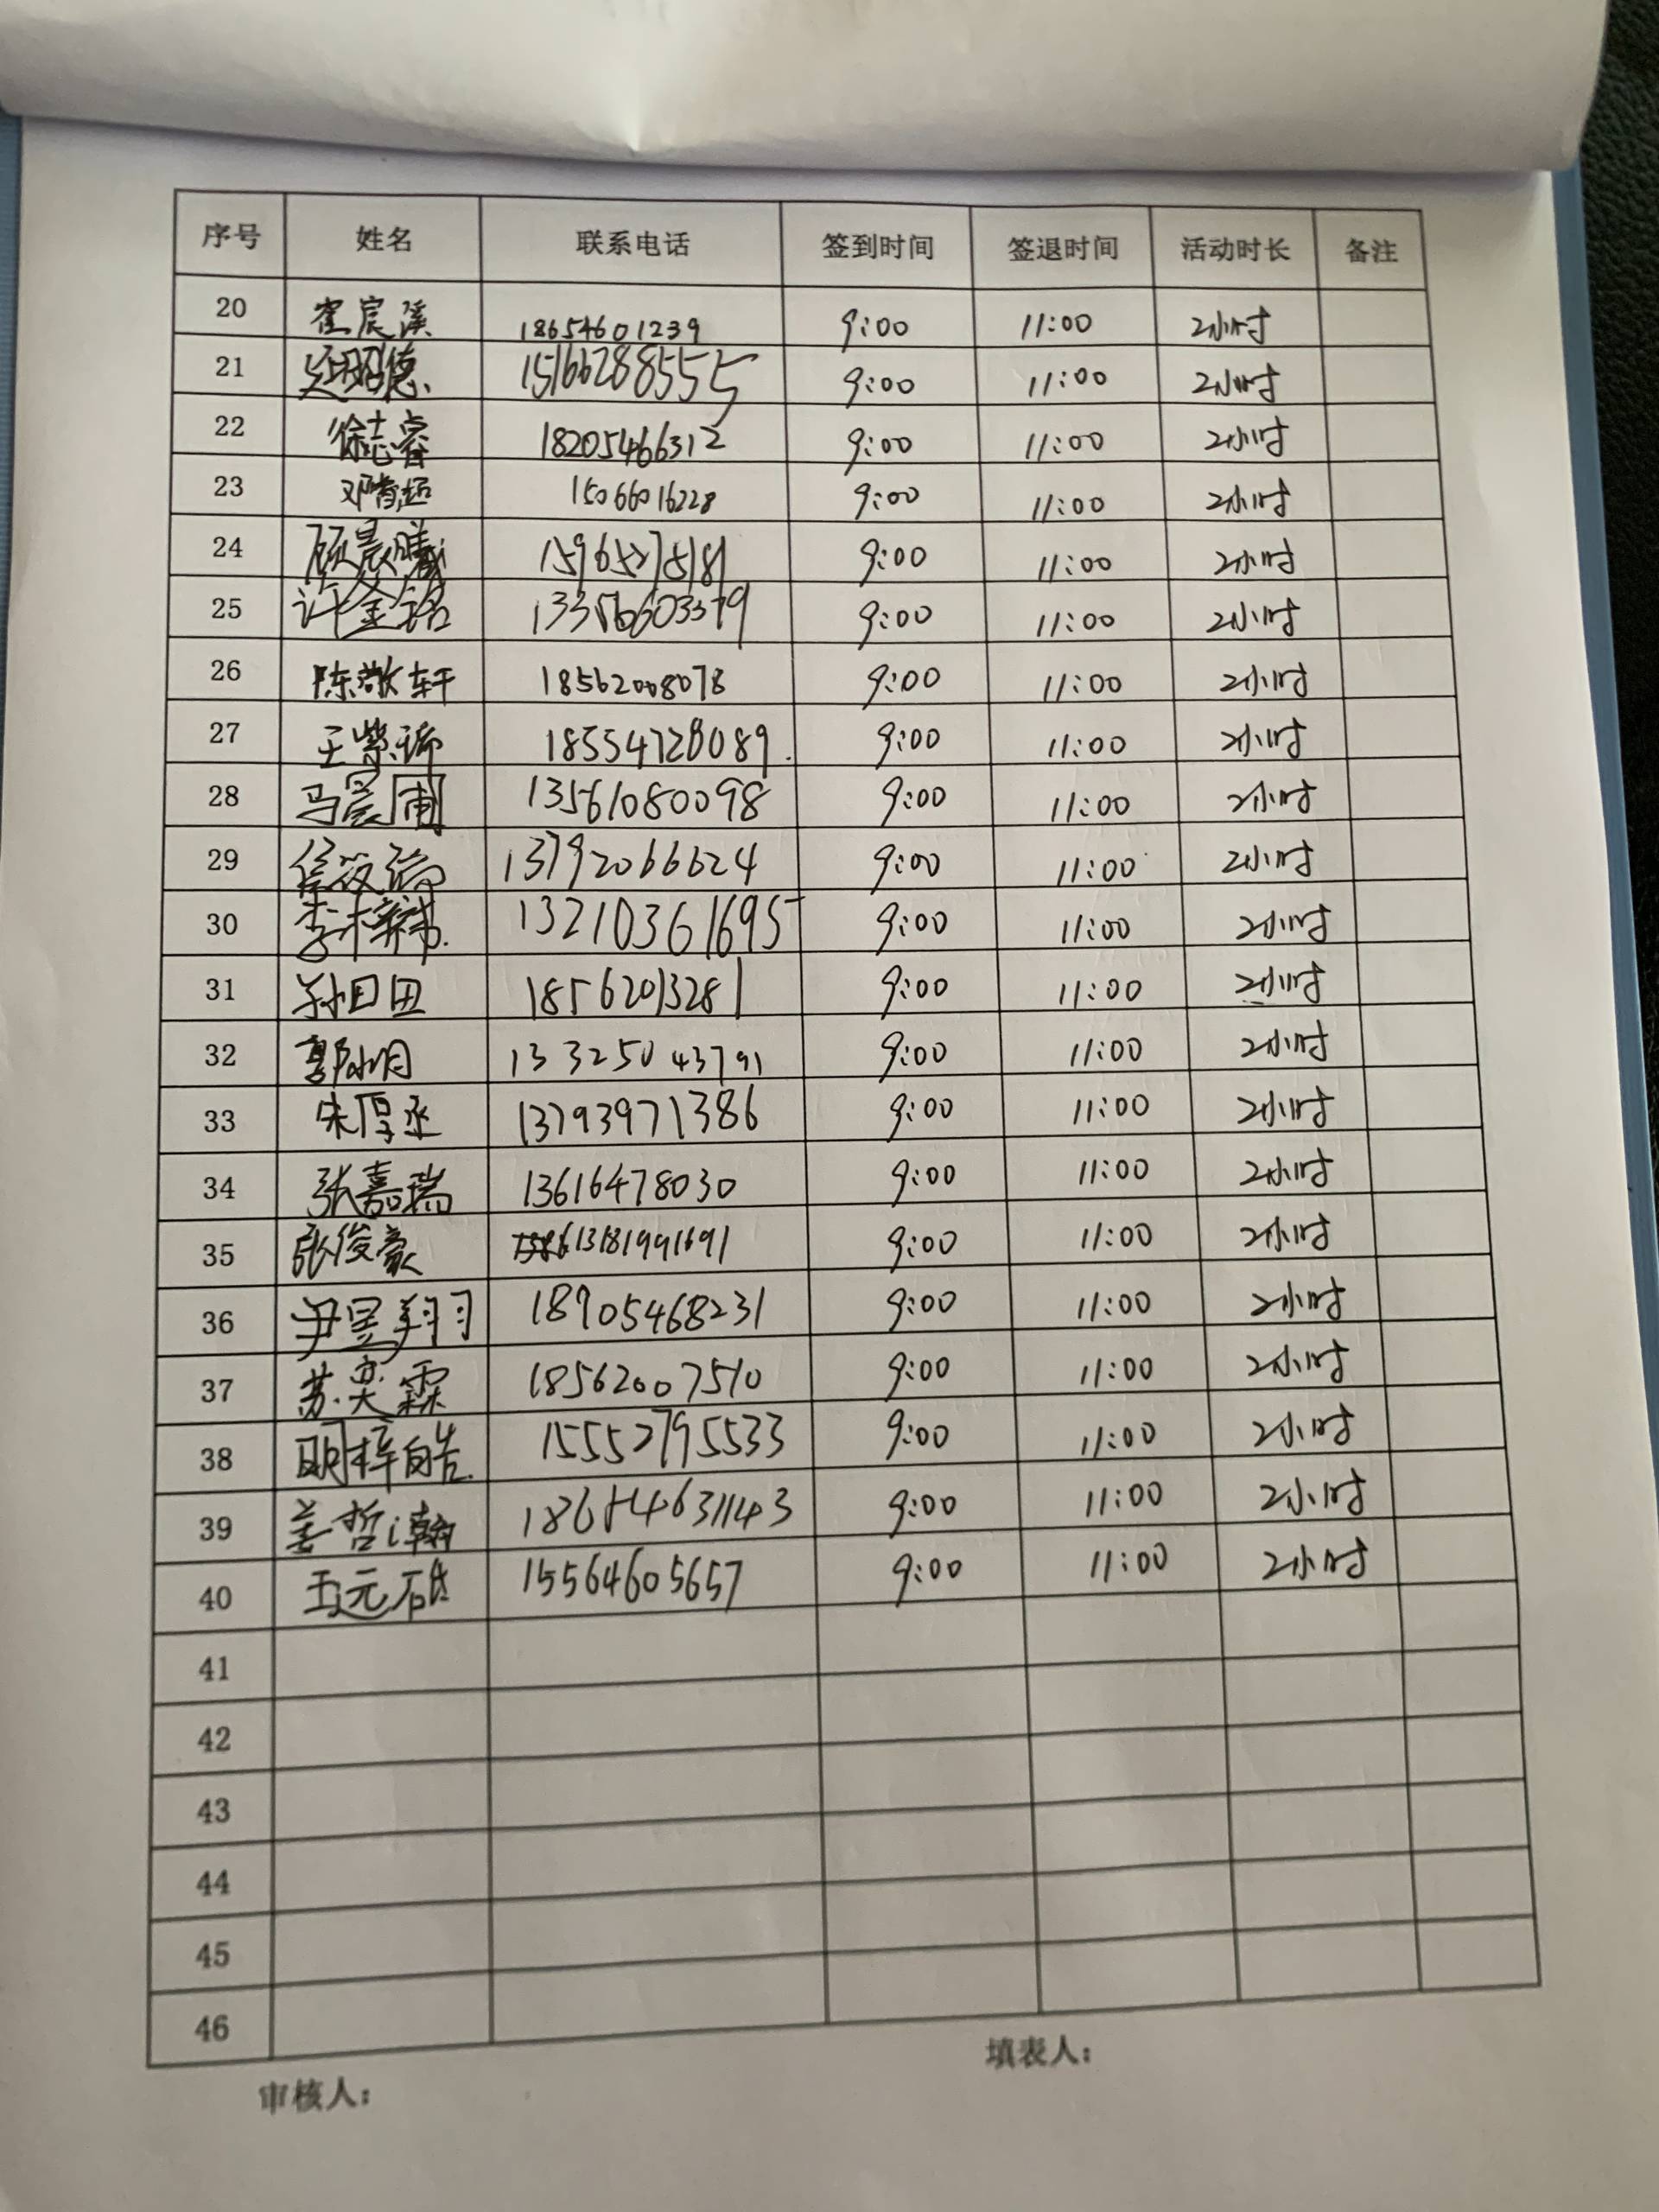 序号 姓名 联系电话 签到时间 签退时间 活动时长 备注
20 崔宸溪 18654601239 9:00 11:00 2小时
21 德 15166288555 9:00 11:00 2小时
22 徐志睿 18205466312 9:00 11:00 2小时
23 邓 15066016228 9:00 11:00 2小时
24 顾晨曦 9:00 11:00 2小时
25 许金铭 9:00 11:00 2小时
26 陈敬轩 18562008078 9:00 11:00 2小时
27 王 18554728089 9:00 11:00 2小时
28 马宸 13561080098 9:00 11:00 2小时
29 13792066624 9:00 11:00 2小时
30 李梓 13210361695 9:00 11:00 2小时
31 孙田田 18562013281 9:00 11:00 2小时
32 郭 13325043791 9:00 11:00 2小时
33 宋厚丞 13793971386 9:00 11:00 2小时
34 张嘉瑞 13616478030 9:00 11:00 2小时
35 张俊豪 9:00 11:00 2小时
36 尹昱翔 18905468231 9:00 11:00 2小时
37 苏奕霖 18562007510 9:00 11:00 2小时
38 明梓皓 15552795533 9:00 11:00 2小时
39 姜哲瀚 9:00 11:00 2小时
40 王元 15564605657 9:00 11:00 2小时
41
42
43
44
45
46
审核人： 填表人：